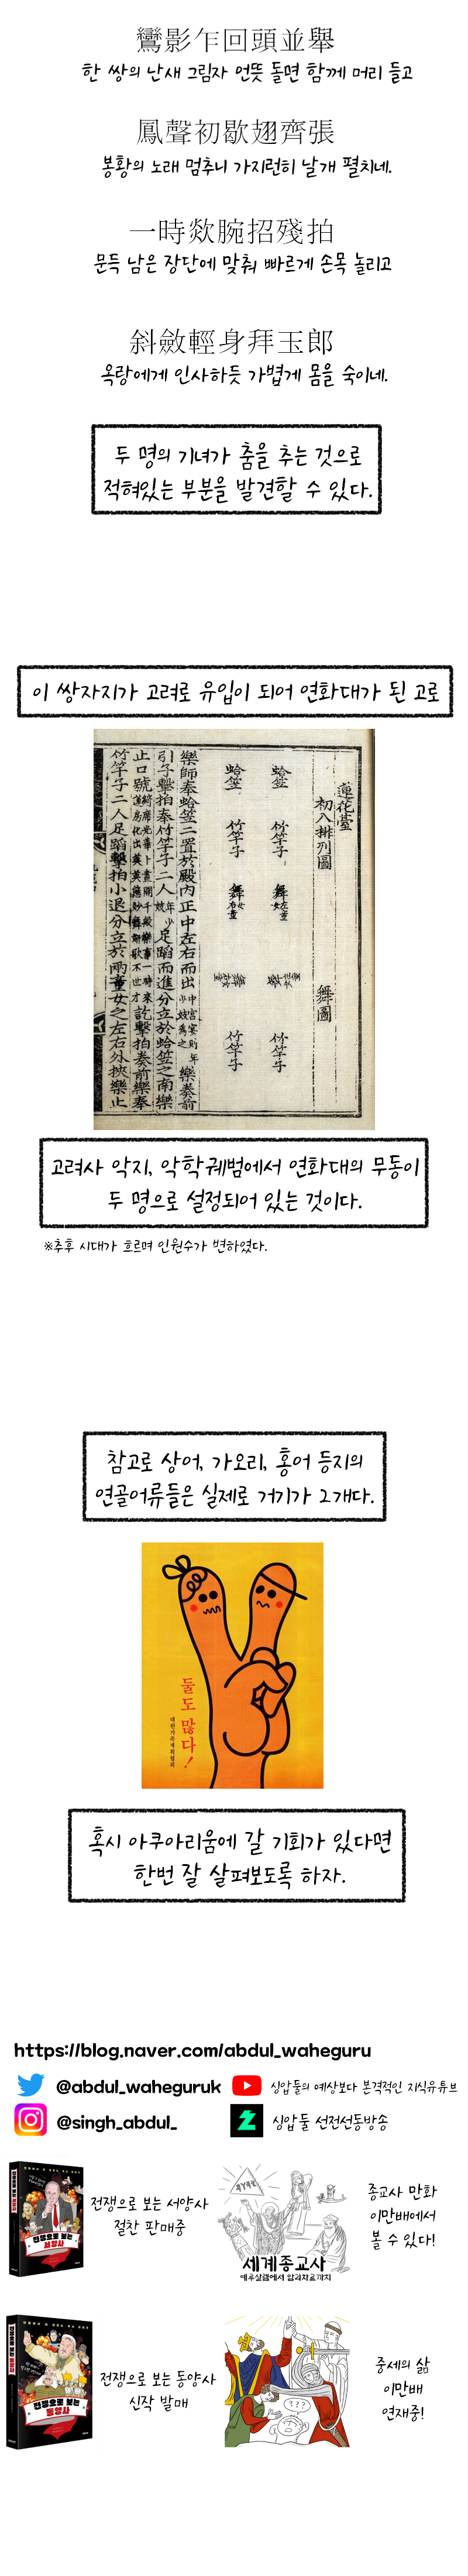 鸞影乍回頭並擧
한 쌍의 난새 그림자 언뜻 돌면 함께 머리 들고
鳳聲初歇翅齊張
봉황의 노래 멈추니 가지런히 날개 펼치네.
一時欻腕招殘拍
문득 남은 장단에 맞춰 빠르게 손목 놀리고
斜斂輕身拜玉郎
옥랑에게 인사하듯 가볍게 몸을 숙이네.
두 명의 기녀가 춤을 추는 것으로
적혀있는 부분을 발견할 수 있다.
이 쌍자지가 고려로 유입이 되어 연화대가 된 고로
蓮花臺
初入排列圖
舞圖
蛤笠 竹竿子 舞 左童女
竹竿子
蛤笠 竹竿子 舞 右童女
竹竿子
樂師奉蛤笠二置於殿內正中左右而出
樂奏前
引子擊拍奉竹竿子二人
足蹈而進分立於蛤笠之南樂
止口號
訖擊拍奏前樂奉
竹竿子二人足蹈擊拍小退分立於兩童女之左右外挾樂止
고려사 악지, 악학궤범에서 연화대의 무동이
두 명으로 설정되어 있는 것이다.
※추후 시대가 흐르며 인원수가 변하였다.
참고로 상어, 가오리, 홍어 등지의
연골어류들은 실제로 거기가 2개다.
둘도 많다!
대한가족계획협회
혹시 아쿠아리움에 갈 기회가 있다면
한번 잘 살펴보도록 하자.
https://blog.naver.com/abdul_waheguru
@abdul_waheguruk
싱압둘의 예상보다 본격적인 지식유튜브
@singh_abdul_
싱압둘 선전선동방송
전쟁으로 보는
서양사
전쟁으로 보는 서양사
절찬 판매중
세계종교사
예루살렘에서 암리차르까지
종교사 만화
이만배에서
볼 수 있다!
전쟁으로 보는
동양사
전쟁으로 보는 동양사
신작 발매
???
중세의 삶
이만배
연재중!